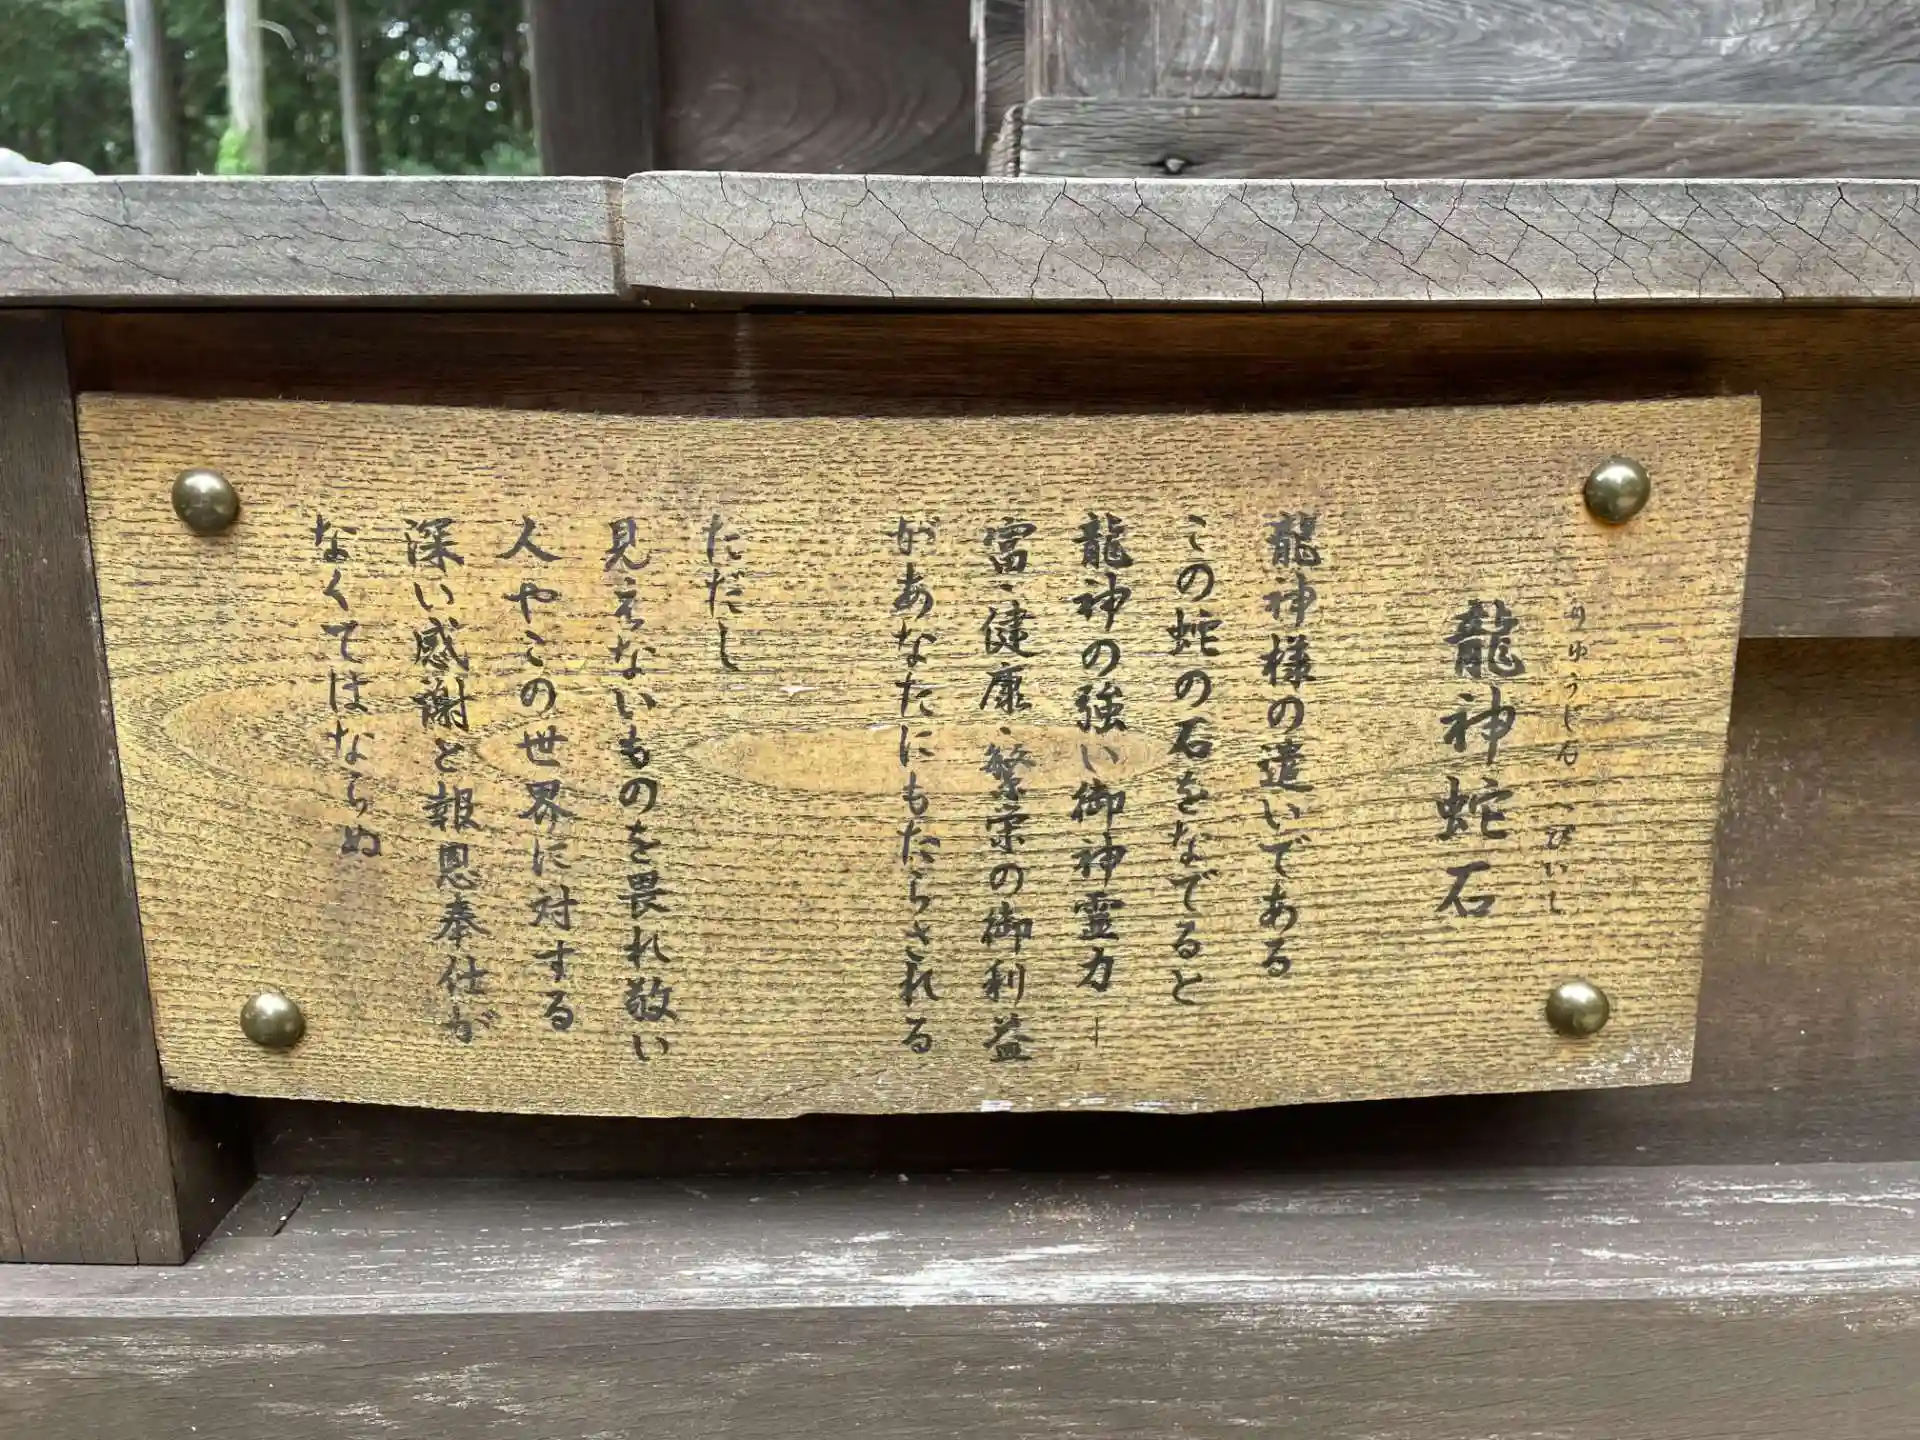 龍神蛇石
龍神様の遣いである
この蛇の石をなでると
龍神の強い御神霊力
富、健康、繁栄の御利益
があなたにもたらされる
ただし
見えないものを畏れ敬い
人やこの世界に対する
深い感謝と報恩奉仕が
なくてはならぬ